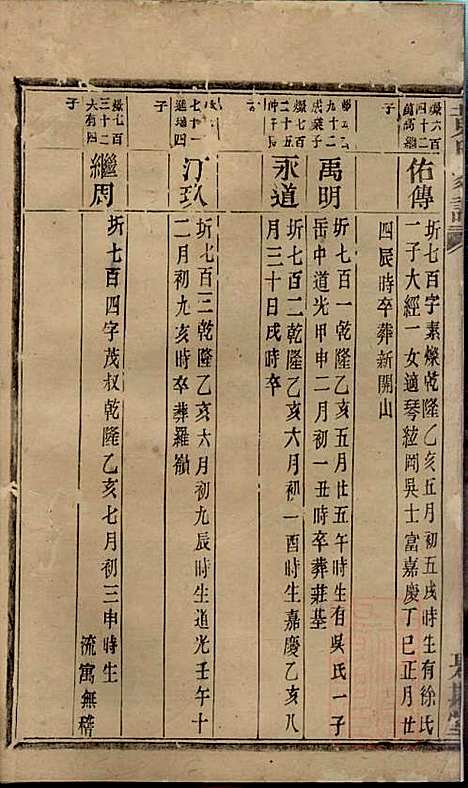 燦六百
四十二
萬高繼
子
佑傳
圻七百字素燦乾隆乙亥五月初五戌時生有徐氏
一子大經一女適琴絃岡吳士富嘉慶丁巳正月廿
四辰時卒葬新開山
九十二
成棐子
禹明
圻七百一乾隆乙亥五月廿五午時生有吳氏一子
岳中道光甲申二月初一丑時卒葬莊基
燦七百
二十五
仲子
永道
圻七百二乾隆乙亥六月初一酉時生嘉慶乙亥八
月三十日戌時卒
七十一
進瑞四
子
汀玖
圻七百三乾隆乙亥六月初九辰時生道光壬午十
二月初九亥時卒葬羅嶺
燦七百
三十二
大有四
子
繼周
圻七百四字茂叔乾隆乙亥七月初三申時生
流寓無稽